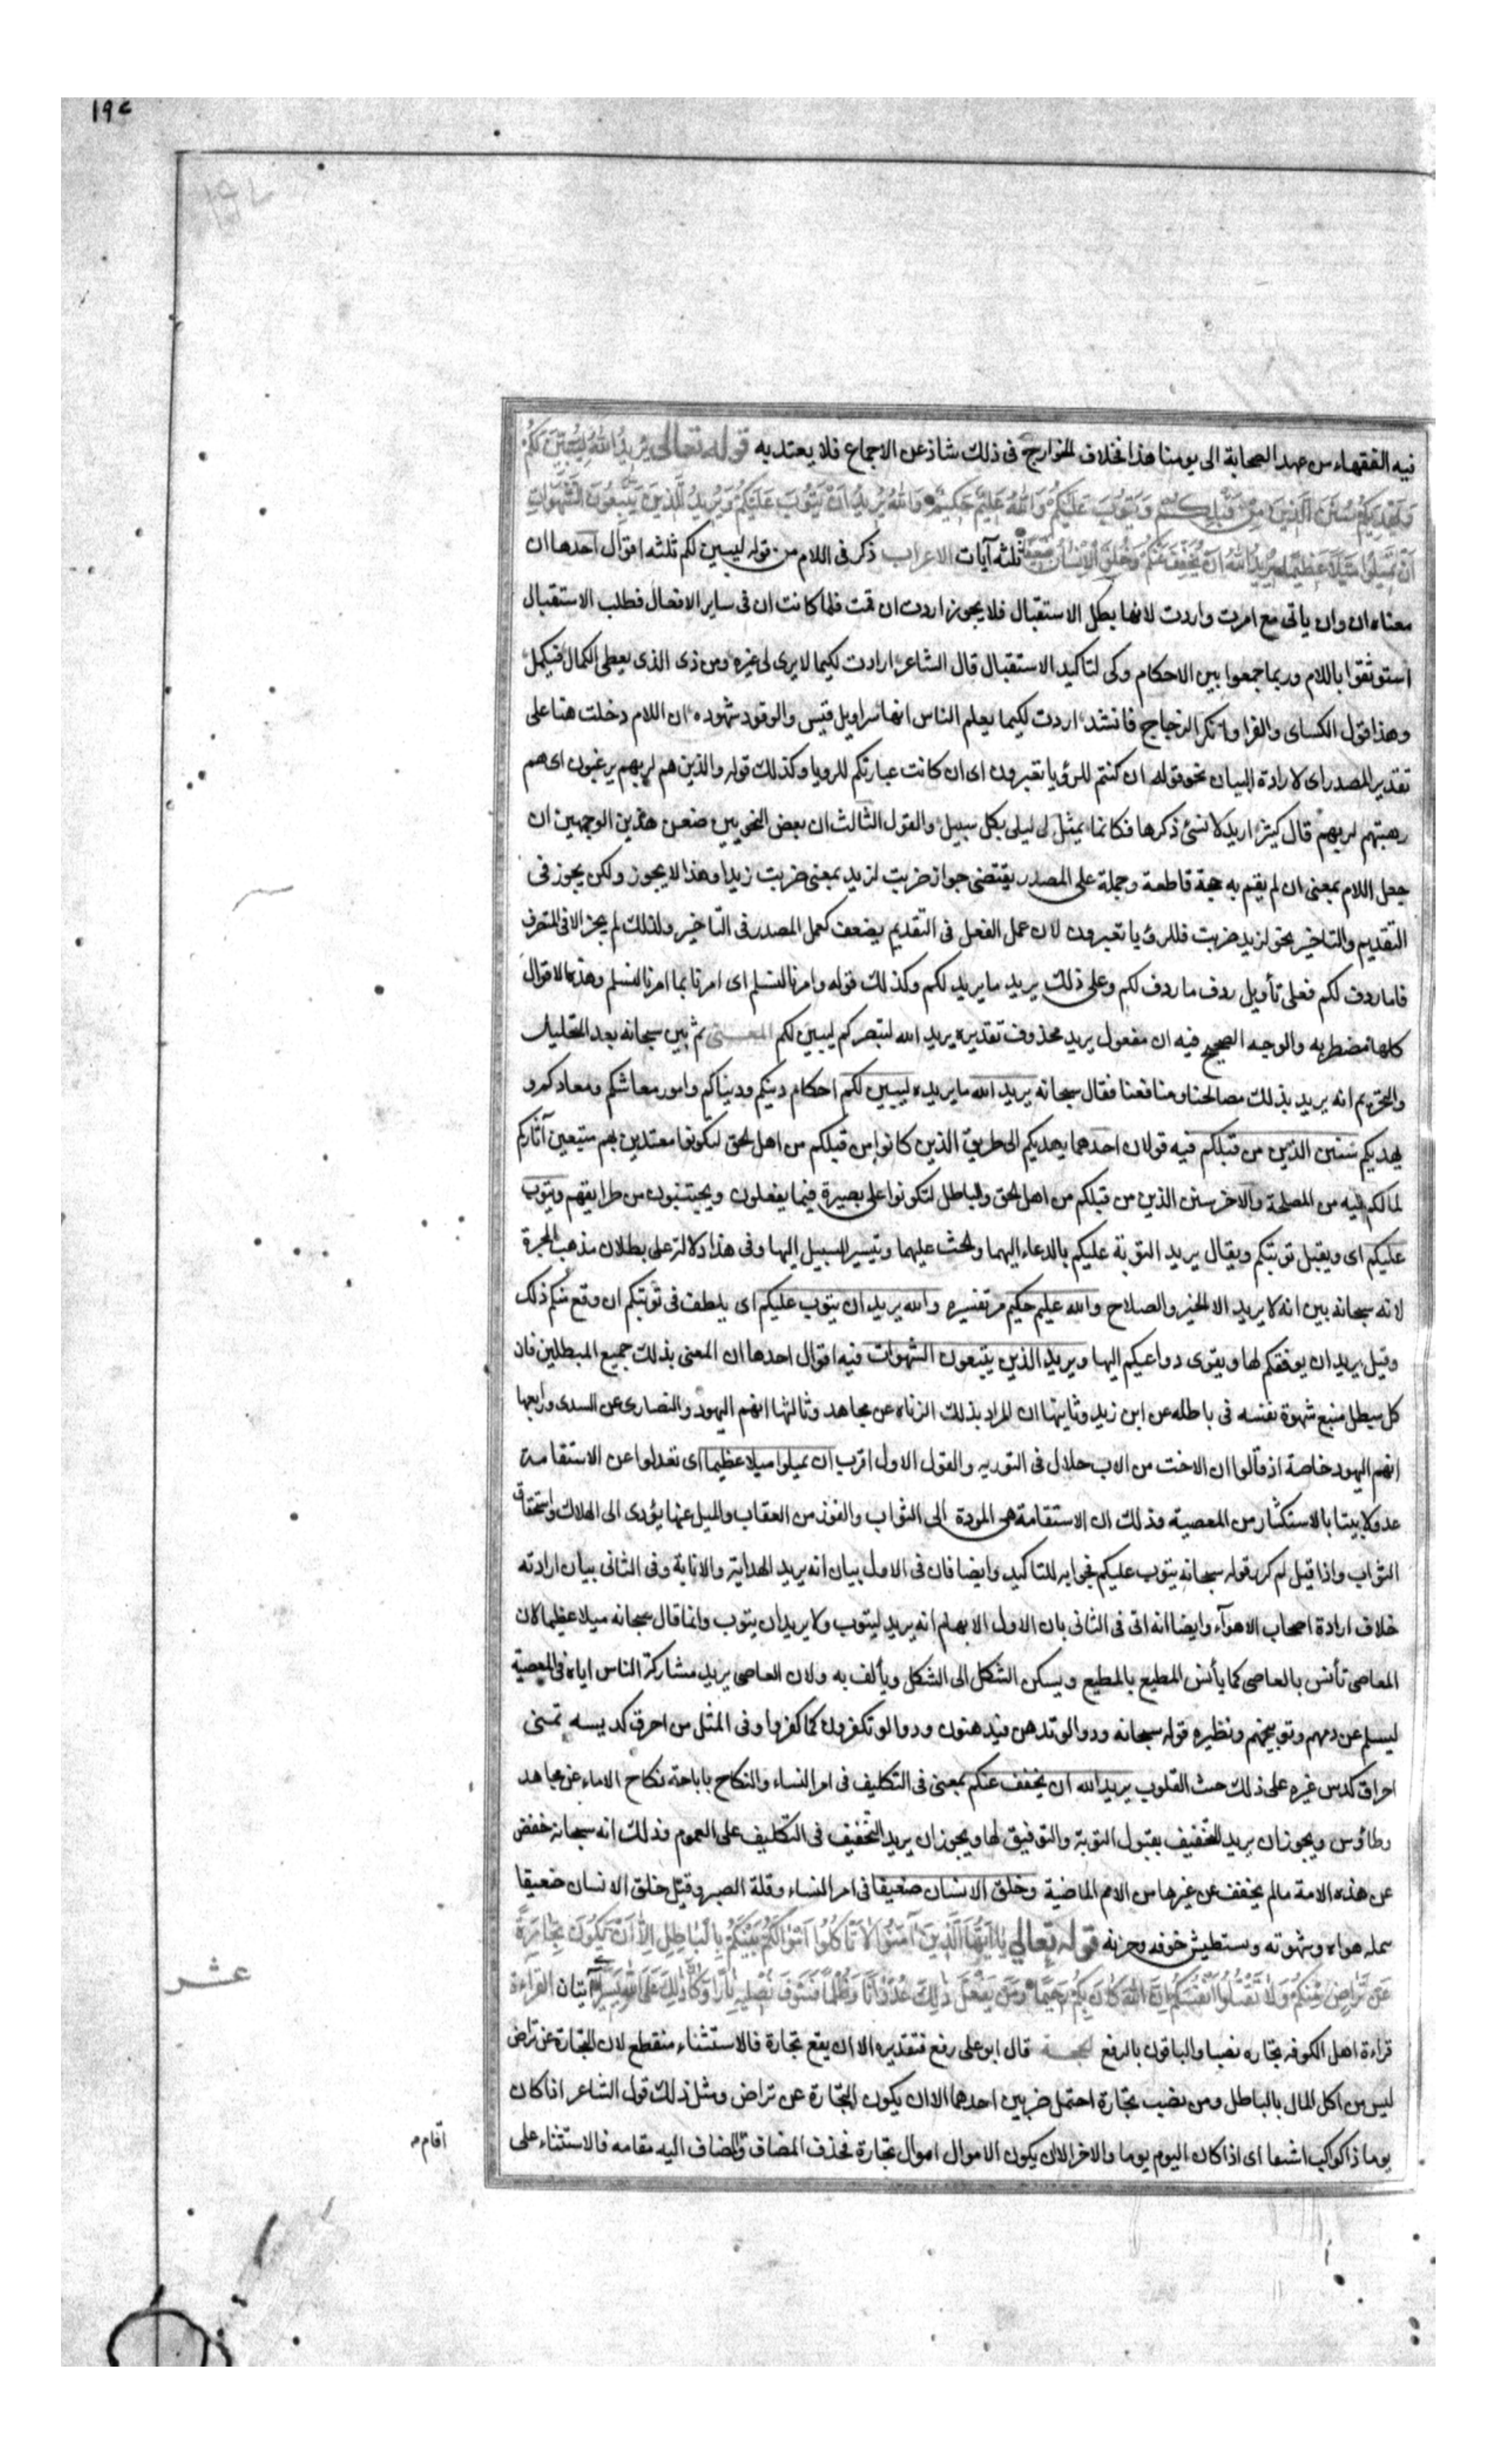 ١٩٢
١٩٢
فيه الفقهاء من عهد الصحابة الى يومنا هذا فخلاف الخوارج فى ذلك شاذ عن الاجماع فلا يعتد به قوله تعالى يُرِيدُ اللهُ لِيُبَيِّنَ لَكُمْ
وَيَهْدِيَكُمْ سُنَنَ الَّذِينَ مِنْ قَبْلِكُمْ وَيَتُوبَ عَلَيْكُمْ وَاللهُ عَلِيمٌ حَكِيمٌ وَاللهُ يُرِيدُ اَنْ يَتُوبَ عَلَيْكُمْ وَيُرِيدُ الَّذِينَ يَتَّبِعُونَ الشَّهَوَاتِ
اَنْ تَمِيلُوا مَيْلًا عَظِيمًا يُرِيدُ اللهُ اَنْ يُخَفِّفَ عَنْكُمْ وَخُلِقَ الْاِنْسَانُ ضَعِيفًا ثلثه آيات الاعراب ذكر فى اللام من قوله ليبين لكم ثلثه اقوال احدها ان
معناه ان وان ياتى مع امرت واردت لانها يطلب الاستقبال فلا يجوز اردت ان قمت فلما كانت ان فى ساير الافعال فطلب الاستقبال
استوثقوا باللام وربما جمعوا بين الاحكام وكى لتاكيد الاستقبال قال الشاعر ارادت لكيما لا يرى لى غيره ومن ذى الذى يعطى الكمال فيكمل
وهذا قول الكساى والفرا وانكر الزجاج فانشد اردت لكيما يعلم الناس انها سراويل قيس والوفود شهوده ان اللام دخلت هنا على
تقدير المصدر اى لارادة البيان نحو قوله ان كنتم للرؤيا تعبرون اى ان كانت عبارتكم للرويا وكذلك قوله والذين هم لربهم يرهبون اى هم
رهبتهم لربهم قال كثير اريد لانسئ ذكرها فكانما يمثل لى ليلى بكل سبيل والقول الثالث ان بعض النحويين ضعف هذين الوجهين ان
جعل اللام بمعنى ان لم يقم به حجة قاطعة وحمله على المصدر يقتضى جواز ضربت لزيد بمعنى ضربت زيدا وهذا لا يجوز ولكن يجوز فى
التقديم والتاخير نحو لزيد ضربت فللرؤيا تعبرون لان عمل الفعل فى التقديم يضعف كعمل المصدر فى التاخير ولذلك لم يجز الا فى المتصرف
فاما ردف لكم فعلى تأويل ردف ما ردف لكم وعلى ذلك يريد ما يريد لكم وكذلك قوله وامرنا لنسلم اى امرنا بما امرنا لنسلم وهذه الاقوال
كلها مضطربه والوجه الصحيح فيه ان مفعول يريد محذوف تقديره يريد الله لتبصركم ليبين لكم المعنى ثم بين سبحانه بعد التحليل
والتحريم انه يريد بذلك مصالحنا ومنافعنا فقال سبحانه يريد الله ما يريده ليبين لكم احكام دينكم ودنياكم وامور معاشكم ومعادكم و
يهديكم سنن الذين من قبلكم فيه قولان احدهما يهديكم الى طريق الذين كانوا من قبلكم من اهل الحق لتكونوا مقتدين بهم متبعين آثارهم
لما لكم فيه من المصلحة والاخر سنن الذين من قبلكم من اهل الحق والباطل لتكونوا على بصيرة فيما يفعلون ويجتنبون من طرايقهم ويتوب
عليكم اى ويقبل توبتكم ويقال يريد التوبة عليكم بالدعاء اليهما والحث عليهما وتيسير السبيل اليها وفى هذا دلالة على بطلان مذهب المجبرة
لانه سبحانه بين انه لا يريد الا الخير والصلاح والله عليم حكيم مر تفسيره والله يريد ان يتوب عليكم اى يلطف فى توبتكم ان وقع منكم ذلك
وقيل يريد ان يوفقكم لها ويقوى دواعيكم اليها ويريد الذين يتبعون الشهوات فيه اقوال احدها ان المعنى بذلك جميع المبطلين فان
كل مبطل متبع شهوة نفسه فى باطله عن ابن زيد وثانيها ان المراد بذلك الزناه عن مجاهد وثالثها انهم اليهود والنصارى عن السدى ورابعها
انهم اليهود خاصة اذ قالوا ان الاخت من الاب حلال فى التوريه والقول الاول اقرب ان تميلوا ميلا عظيما اى تعدلوا عن الاستقامة
عدولا بينا بالاستكثار من المعصية وذلك ان الاستقامة هى المودة الى الثواب والفوز من العقاب والميل عنها يؤدى الى الهلاك واستحقاق
الثواب واذا قيل لم كرر قوله سبحانه يتوب عليكم فجوابه للتاكيد وايضا فان فى الاول بيان انه يريد الهداية والانابة وفى الثانى بيان ارادته
خلاف ارادة اصحاب الاهوآء وايضا انه اتى فى الثانى بان الاول الابهام انه يريد ليتوب ولا يريد ان يتوب وانما قال سبحانه ميلا عظيما لان
المعاصى تأنس بالعاصى كما يأنس المطيع بالمطيع ويسكن الشكل الى الشكل ويألف به ولان العاصى يريد مشاركة الناس اياه فى المعصية
ليسلم عن ذمهم وتوبيخهم ونظيره قوله سبحانه ودوا لو تدهن فيدهنون ودوا لو تكفرون كما كفروا وفى المثل من احرق كديسه تمنى
احراق كدس غيره على ذلك حث القلوب يريد الله ان يخفف عنكم بمعنى فى التكليف فى امر النساء والنكاح باباحة نكاح الاماء عن مجاهد
وطاؤس ويجوز ان يريد التخفيف بقبول التوبة والتوفيق لها ويجوز ان يريد التخفيف فى التكليف على العموم وذلك انه سبحانه خفف
عن هذه الامة مالم يخفف عن غيرها من الامم الماضية وخلق الانسان ضعيفا فى امر النساء وقلة الصبر وقيل خلق الانسان ضعيفا
يمله هواه وشهوته ويستطيش خوفه وحزنه قوله تعالى يَا اَيُّهَا الَّذِينَ آمَنُوا لَا تَأْكُلُوا اَمْوَالَكُمْ بَيْنَكُمْ بِالْبَاطِلِ اِلَّا اَنْ تَكُونَ تِجَارَةً
عَنْ تَرَاضٍ مِنْكُمْ وَلَا تَقْتُلُوا اَنْفُسَكُمْ اِنَّ اللهَ كَانَ بِكُمْ رَحِيمًا وَمَنْ يَفْعَلْ ذٰلِكَ عُدْوَانًا وَظُلْمًا فَسَوْفَ نُصْلِيهِ نَارًا وَكَانَ ذٰلِكَ عَلَى اللهِ يَسِيرًا آيتان القراءة
عشر
قراءة اهل الكوفه تجاره نصبا والباقون بالرفع الحجة قال ابو على رفع فتقديره الا ان يقع تجارة فالاستثناء منقطع لان التجارة عن تراض
ليس من اكل المال بالباطل ومن نصب تجارة احتمل ضربين احدهما الا ان يكون التجارة عن تراض ومثل ذلك قول الشاعر اذا كان
يوما ذا كواكب اشنعا اى اذا كان اليوم يوما والاخر الا ان يكون الاموال اموال تجارة فحذف المضاف والمضاف اليه مقامه فالاستثناء على
اقام م